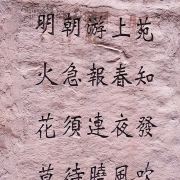 明朝游上苑
火急報春知
花須連夜發
莫待曉風吹